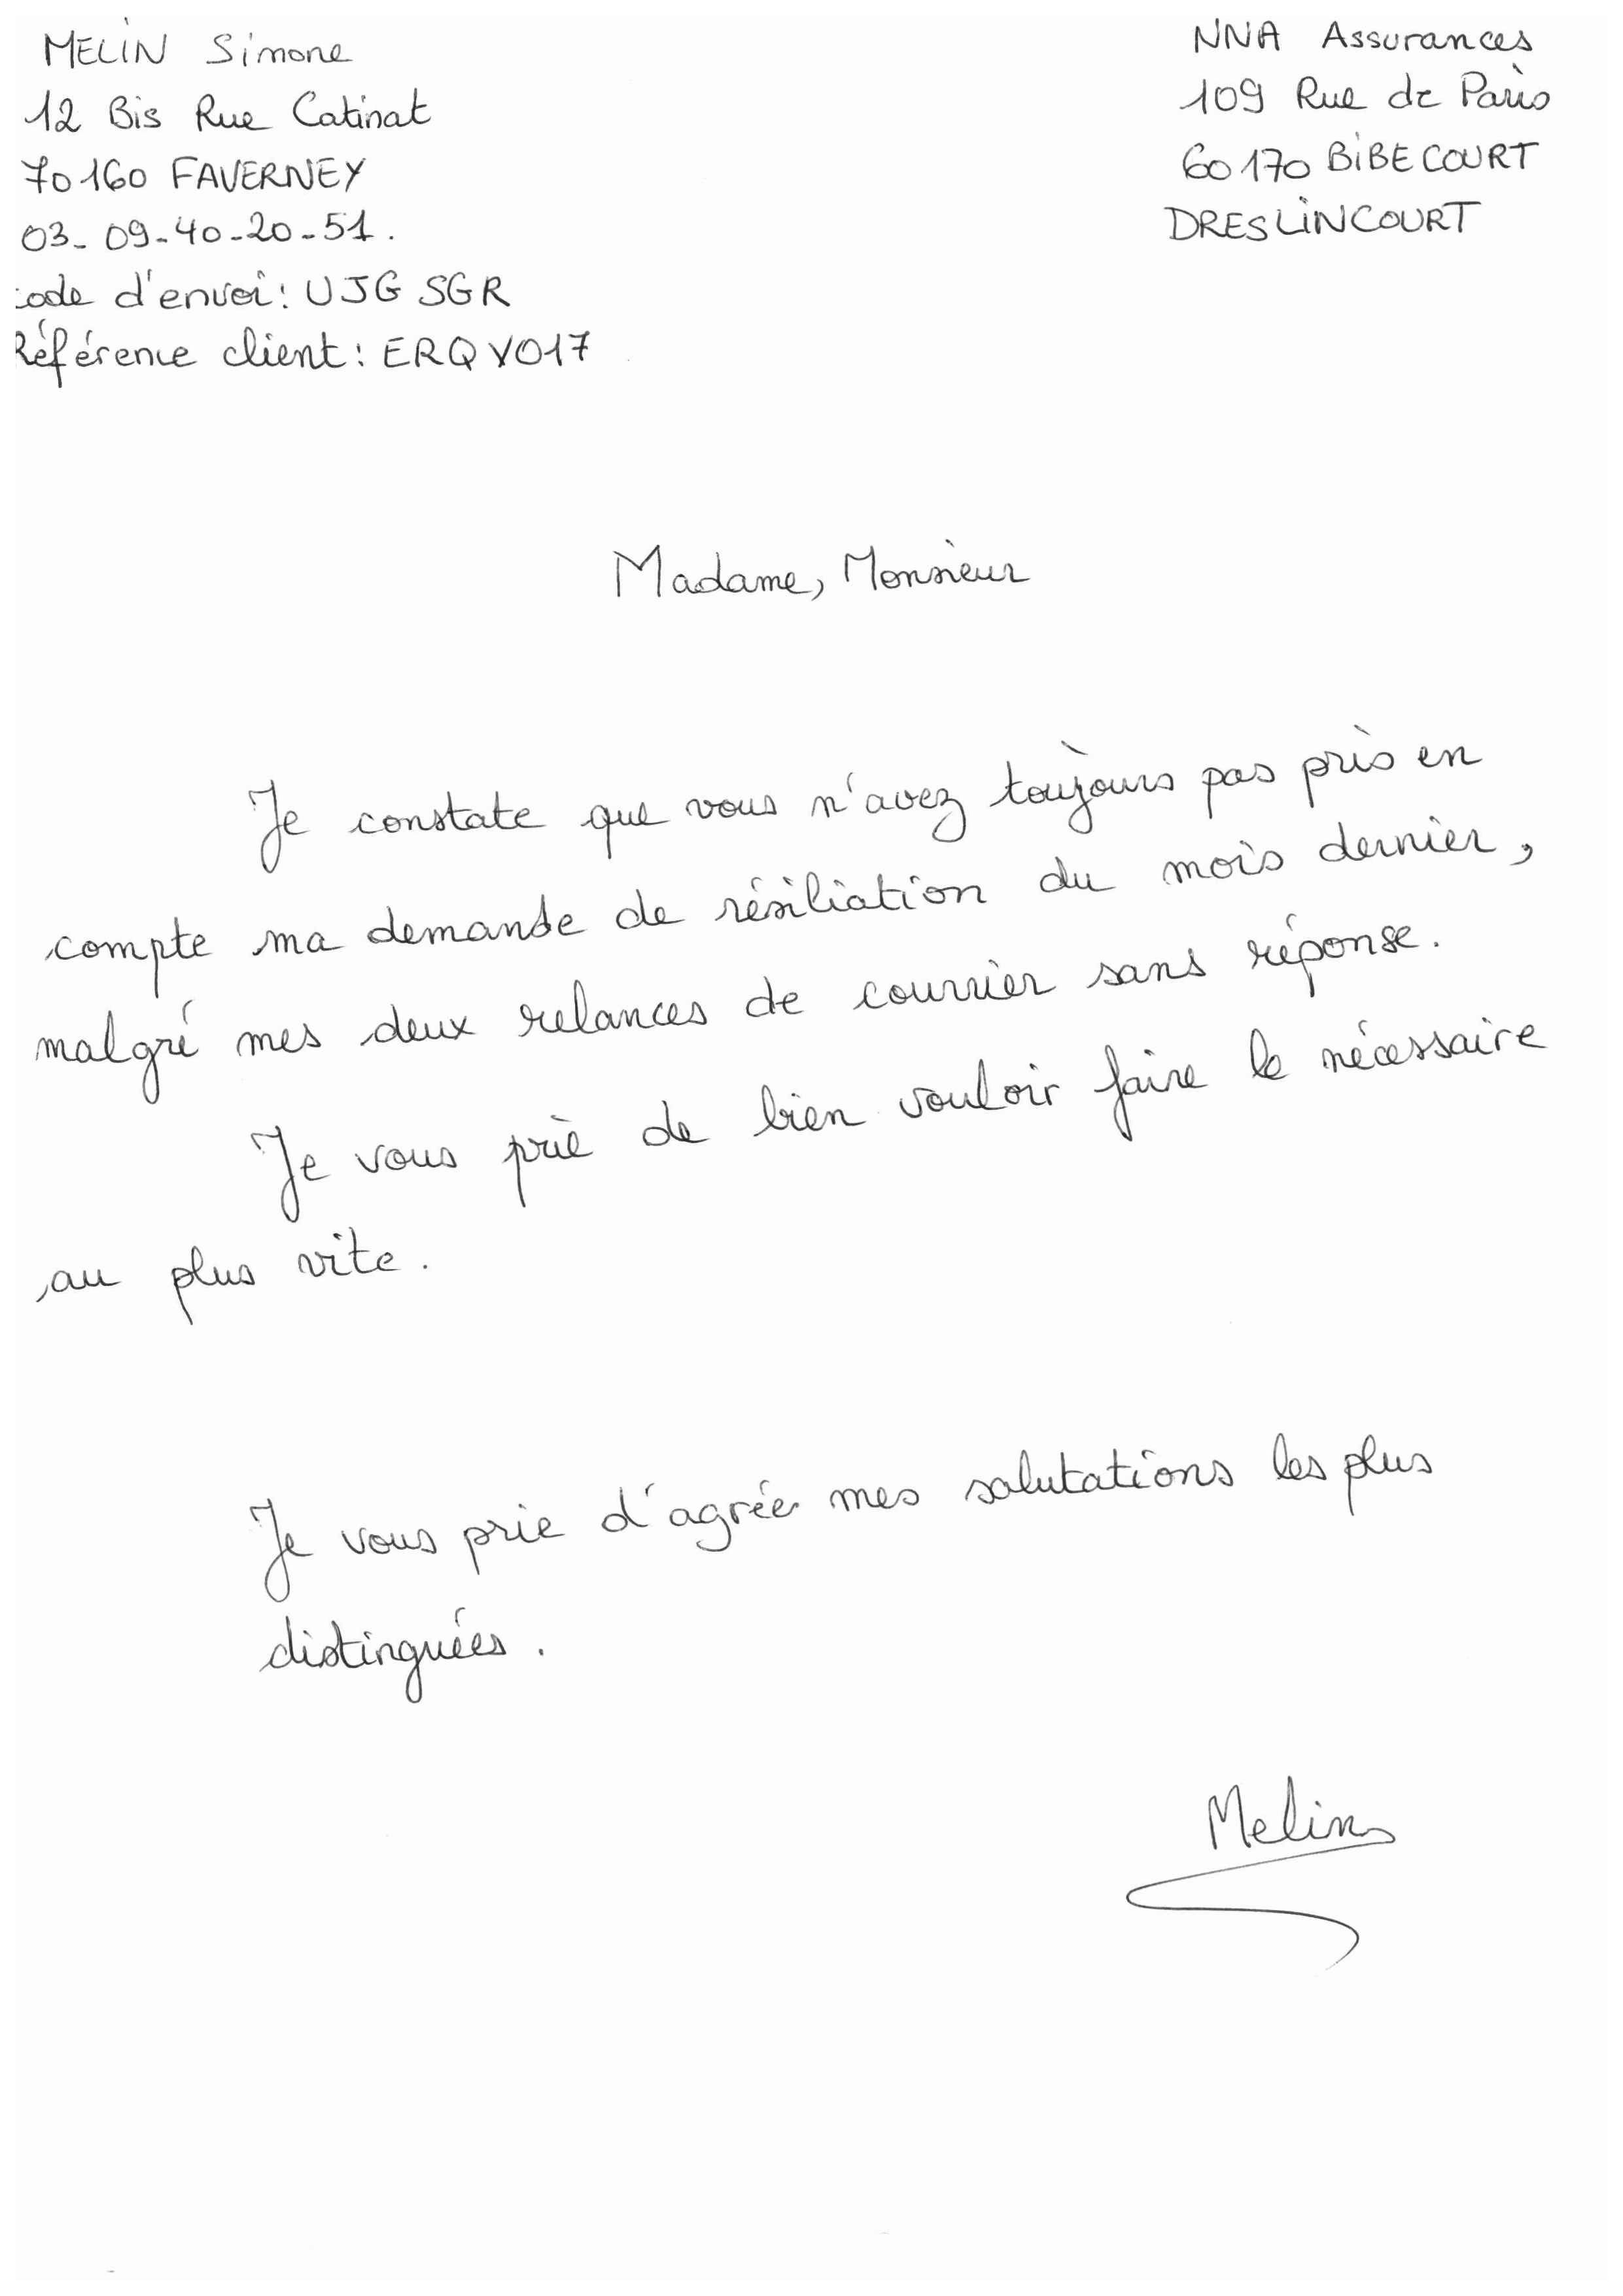 MELIN Simone
12 Bis Rue Catinat
70160 FAVERNEY
03-09-40-20-51.
code d'envoi: UJGSGR
Référence client: ERQVO17
NNA Assurances
109 Rue de Paris
60170 BIBECOURT
DRESLINCOURT
Madame, Monsieur
Je constate que vous n'avez toujours pas pris en
compte ma demande de résiliation du mois dernier,
malgré mes deux relances de courrier sans réponse.
Je vous prie de bien vouloir faire le nécessaire
au plus vite.
Je vous prie d'agrée mes salutations les plus
distinguées.
Melin